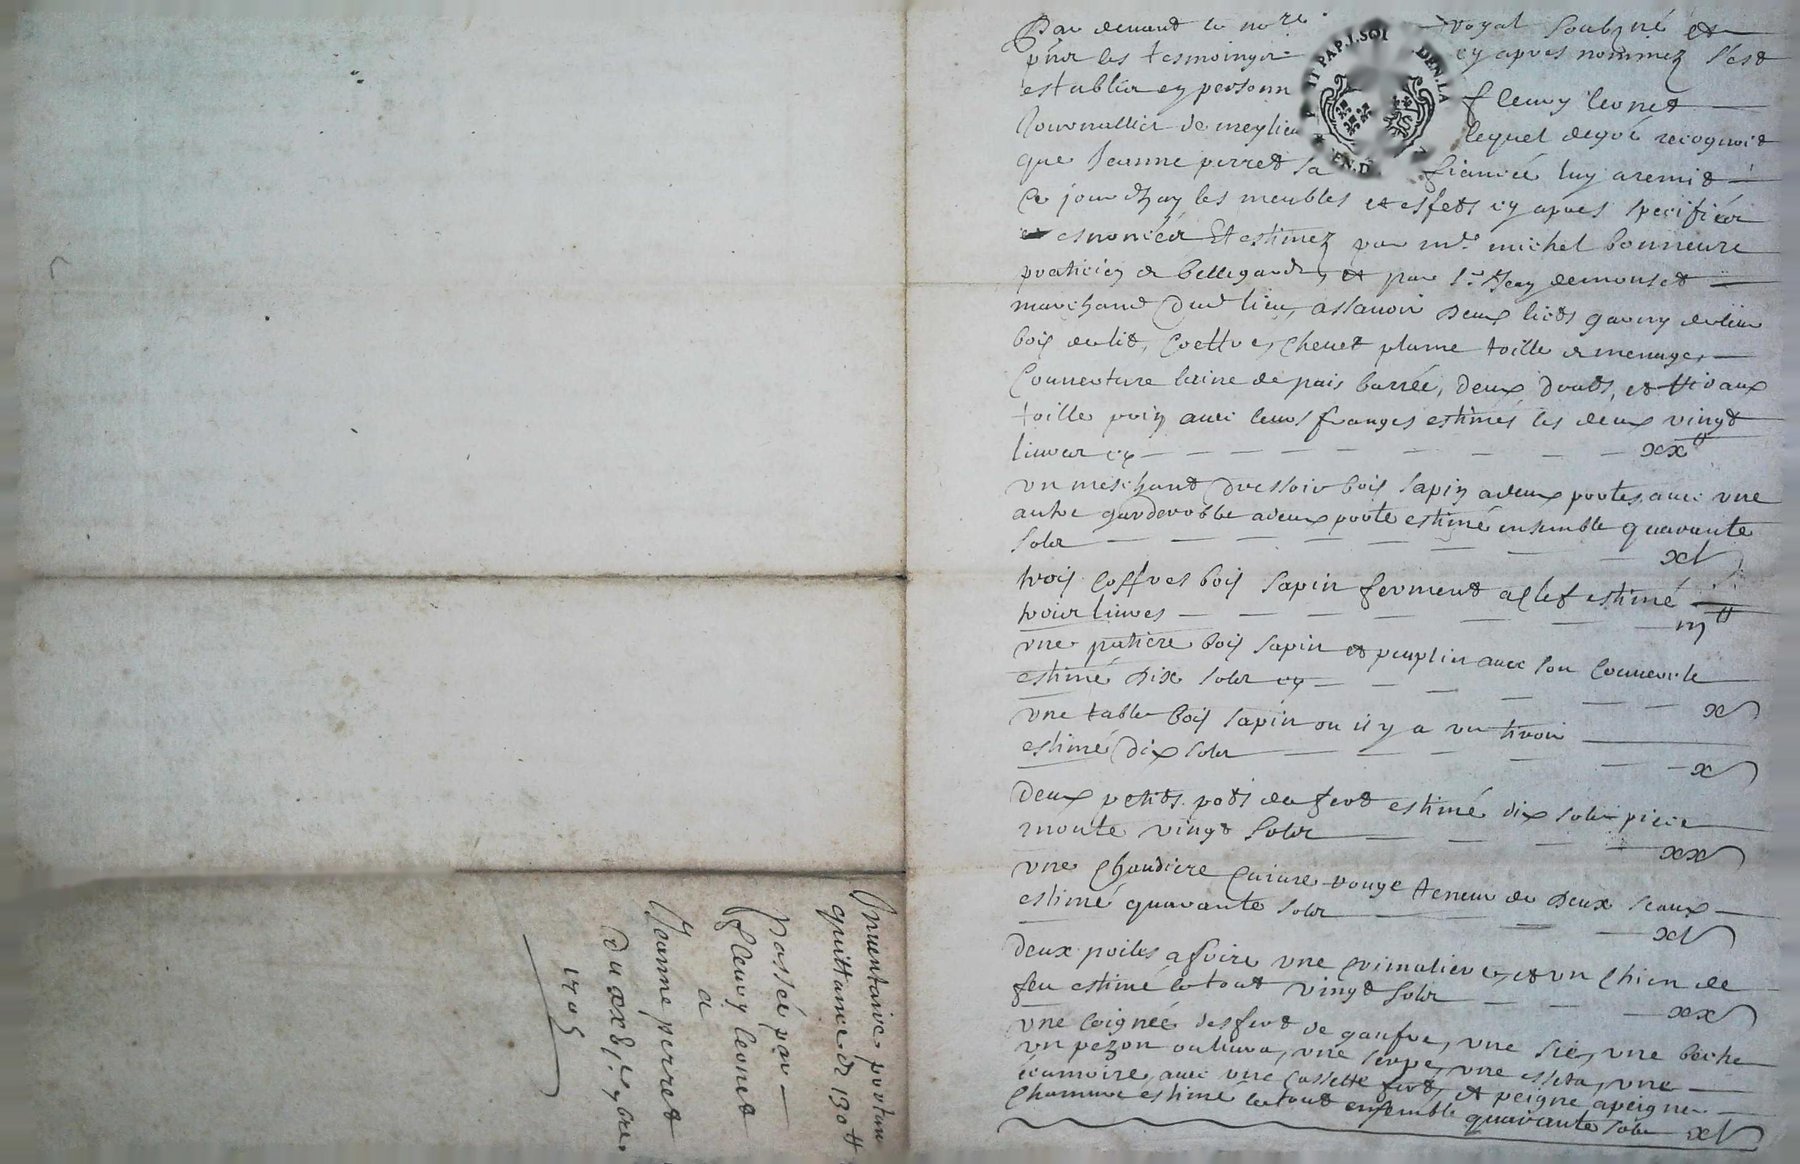 Par devant le no.re royal soubzné et
pnts les tesmoingts cy apres nommez s'est
establis en personn fleury leonet
Journallier de meylieu lequel degré recognoit
que Jeanne perret sa fiancée luy a remit
Ce jourdhuy les meubles et effets cy apres specifiéz
et esnoncéz Et estimez par m.e michel bonneure
praticien de bellegarde, et par s.r Jean demonset
marchand dud. lieu, assavoir deux licts garny de leur
bois de lit, Coettre, Chevet plume toille de menage,
Couverture laine de pais barrée, deux draps, et rideaux
toille avec leurs franges estimés les deux vingt
livres cy xx tt
un meschant dressoir bois sapin a deux portes avec une
autre garderobbe a deux porte estimé ensemble quarante
sols xl s
trois Coffres bois sapin ferment a Clef estimé
trois livres iij tt
une patiere bois sapin et peuplin avec son Couvercle
estimé dix sols cy x s
une table bois sapin ou il y a un tiroir
estimé dix sols x s
deux petits pots de fert estimé dix sols piece
monte vingt sols xx s
une Chaudiere Cuivre rouge teneur de deux seaux
estimé quarante sols xl s
deux poiles a frire une Crimaliere, et un Chien de
feu estimé le tout vingt sols xx s
une Coignée des fert de gaufre, une sie, une beche
un pezon ou liura, une serpe, une esseta, une
écumoire, avec une Cassette fert, et peigne a peigner
Chamvre estimé le tout ensemble quarante sols xl s
Inventaire portan
quittance de 130 tt
passé par
fleury leonet
a
Jeanne perret
du xx 8bre
1705
PAP.I.SOI DEN.LA
EN.D